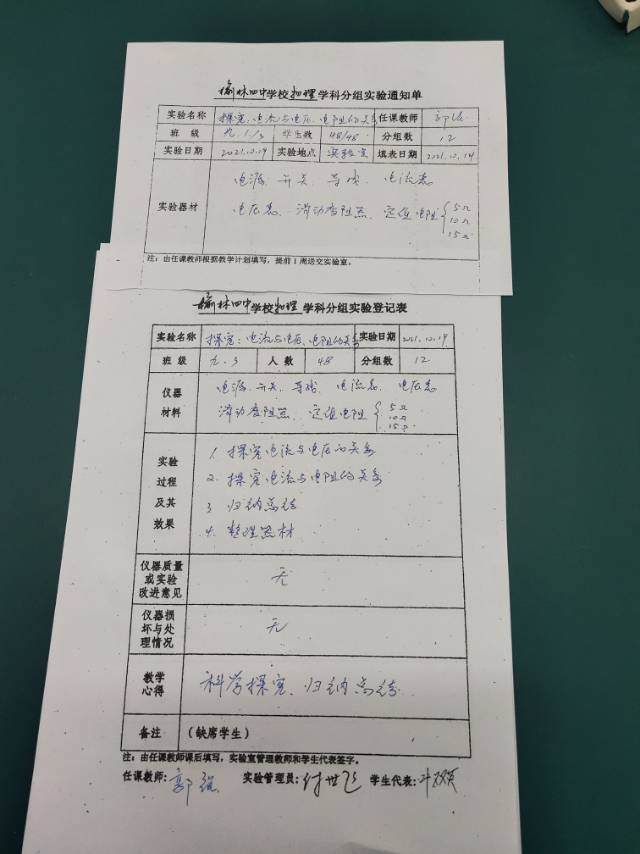 榆林四中学校物理学科分组实验通知单
实验名称 探究:电流与电压、电阻的关系 任课教师 郭强
班 级 九.1/3 学生数 48/48 分组数 12
实验日期 2021.12.19 实验地点 实验室 填表日期 2021.12.14
实验器材 电源 开关、导线、电流表
电压表、滑动变阻器、定值电阻 5Ω 10Ω 15Ω
注:由任课教师根据教学计划填写,提前1周送交实验室。
榆林四中学校物理学科分组实验登记表
实验名称 探究:电流与电压、电阻的关系 实验日期 2021.12.19
班 级 九.3 人 数 48 分组数 12
仪器材料 电源 开关、导线、电流表、电压表
滑动变阻器、定值电阻 5Ω 10Ω 15Ω
实验过程及其效果
1. 探究电流与电压的关系
2. 探究电流与电阻的关系
3 归纳总结
4. 整理器材
仪器质量或实验改进意见 无
仪器损坏与处理情况 无
教学心得 科学探究、归纳总结
备注 (缺席学生)
注:由任课教师课后填写,实验室管理教师和学生代表签字。
任课教师:郭强 实验管理员:付世飞 学生代表: